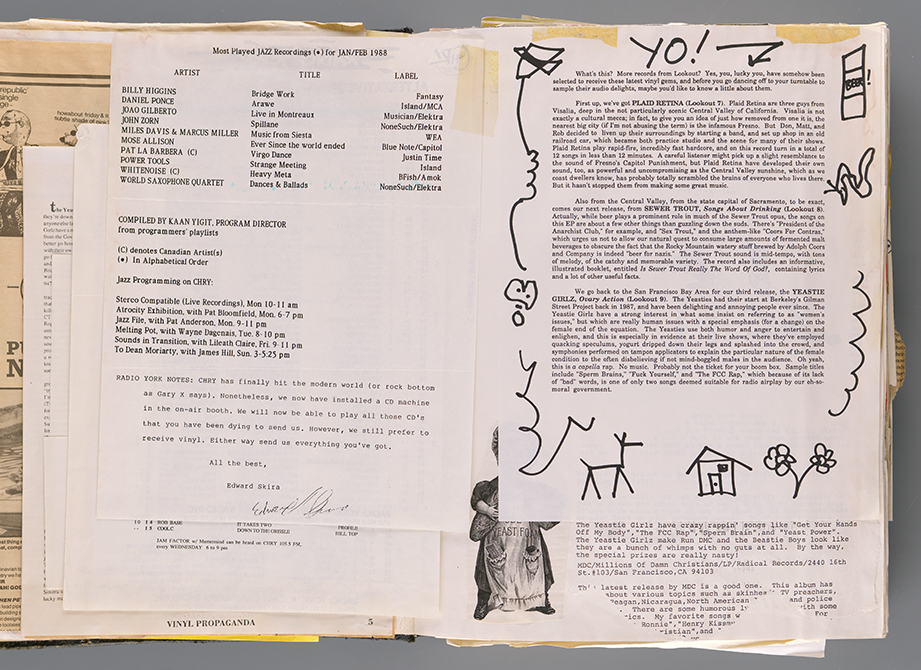 republic
single
nge-
howabout friday & n
P
N
the Year
they're down
anyone else lis
Most Played JAZZ Recordings (•) for JAN/FEB 1988
ARTIST TITLE LABEL
BILLY HIGGINS Bridge Work Fantasy
DANIEL PONCE Arawe Island/MCA
JOAO GILBERTO Live in Montreaux Musician/Elektra
JOHN ZORN Spillane NoneSuch/Elektra
MILES DAVIS & MARCUS MILLER Music from Siesta WEA
MOSE ALLISON Ever Since the world ended Blue Note/Capitol
PAT LA BARBERA (C) Virgo Dance Justin Time
POWER TOOLS Strange Meeting Island
WHITENOISE (C) Heavy Meta BFish/Amok
WORLD SAXOPHONE QUARTET Dances & Ballads NoneSuch/Elektra
COMPILED BY KAAN YIGIT, PROGRAM DIRECTOR
from programmers' playlists
(C) denotes Canadian Artist(s)
(•) In Alphabetical Order
Jazz Programming on CHRY:
Stereo Compatible (Live Recordings), Mon 10-11 am
Atrocity Exhibition, with Pat Bloomfield, Mon. 6-7 pm
Jazz File, with Pat Anderson, Mon. 9-11 pm
Melting Pot, with Wayne Dagenais, Tue. 8-10 pm
Sounds in Transition, with Lileath Claire, Fri. 9-11 pm
To Dean Moriarty, with James Hill, Sun. 3-5:25 pm
RADIO YORK NOTES: CHRY has finally hit the modern world (or rock bottom
as Gary X says). Nonetheless, we now have installed a CD machine
in the on-air booth. We will now be able to play all those CD's
that you have been dying to send us. However, we still prefer to
receive vinyl. Either way send us everything you've got.
All the best,
Edward Skira
10 14 ROB BASE IT TAKES TWO PROFILE
-- 15 COOL C DOWN TO THE GRISSLE HILL TOP
JAM FACTOR w/ Mastermind can be heard on CHRY 105.5 FM,
every WEDNESDAY 6 to 9 pm
VINYL PROPAGANDA 5
YO!
BEER!
What's this? More records from Lookout? Yes, you, lucky you, have somehow been
selected to receive these latest vinyl gems, and before you go dancing off to your turntable to
sample their audio delights, maybe you'd like to know a little about them.
First up, we've got PLAID RETINA (Lookout 7). Plaid Retina are three guys from
Visalia, deep in the not particularly scenic Central Valley of California. Visalia is not
exactly a cultural mecca; in fact, to give you an idea of just how removed from one it is, the
nearest big city (if I'm not abusing the term) is the infamous Fresno. But Don, Matt, and
Rob decided to liven up their surroundings by starting a band, and set up shop in an old
railroad car, which became both practice studio and the scene for many of their shows.
Plaid Retina play rapid-fire, incredibly fast hardcore, and on this record turn in a total of
12 songs in less than 12 minutes. A careful listener might pick up a slight resemblance to
the sound of Fresno's Capitol Punishment, but Plaid Retina have developed their own
sound, too, as powerful and uncompromising as the Central Valley sunshine, which as we
coast dwellers know, has probably totally scrambled the brains of everyone who lives there.
But it hasn't stopped them from making some great music.
Also from the Central Valley, from the state capital of Sacramento, to be exact,
comes our next release, from SEWER TROUT, Songs About Drinking (Lookout 8).
Actually, while beer plays a prominent role in much of the Sewer Trout opus, the songs on
this EP are about a few other things than guzzling down the suds. There's "President of the
Anarchist Club," for example, and "Sex Trout," and the anthem-like "Coors For Contras,"
which urges us not to allow our natural quest to consume large amounts of fermented malt
beverages to obscure the fact that the Rocky Mountain watery stuff brewed by Adolph Coors
and Company is indeed "beer for nazis." The Sewer Trout sound is mid-tempo, with tons
of melody, of the catchy and memorable variety. The record also includes an informative,
illustrated booklet, entitled Is Sewer Trout Really The Word Of God?, containing lyrics
and a lot of other useful facts.
We go back to the San Francisco Bay Area for our third release, the YEASTIE
GIRLZ, Ovary Action (Lookout 9). The Yeasties had their start at Berkeley's Gilman
Street Project back in 1987, and have been delighting and annoying people ever since. The
Yeastie Girlz have a strong interest in what some insist on referring to as "women's
issues," but which are really human issues with a special emphasis (for a change) on the
female end of the equation. The Yeasties use both humor and anger to entertain and
enlighten, and this is especially in evidence at their live shows, where they've employed
quacking speculums, yogurt dripped down their legs and splashed into the crowd, and
symphonies performed on tampon applicators to explain the particular nature of the female
condition to the often disbelieving if not mind-boggled males in the audience. Oh yeah,
this is a capella rap. No music. Probably not the ticket for your boom box. Sample titles
include "Sperm Brains," "Fuck Yourself," and "The FCC Rap," which because of its lack
of "bad" words, is one of only two songs deemed suitable for radio airplay by our oh-so-
moral government.
YEAST FOA
The Yeastie Girlz have crazy rappin' songs like "Get Your Hands
Off My Body","The FCC Rap","Sperm Brain",and "Yeast Power".
The Yeastie Girlz make Run DMC and the Beastie Boys look like
they are a bunch of whimps with no guts at all. By the way,
the special prizes are really nasty!
MDC/Millions Of Damn Christians/LP/Radical Records/2440 16th
St.#103/San Francisco,CA 94103
This latest release by MDC is a good one. This album has
about various topics such as skinhea TV preachers,
Reagan,Nicaragua,North American and police
There are some humorous ly with some
ics. My favorite songs w For
Ronnie","Henry Kissm
istian",and "